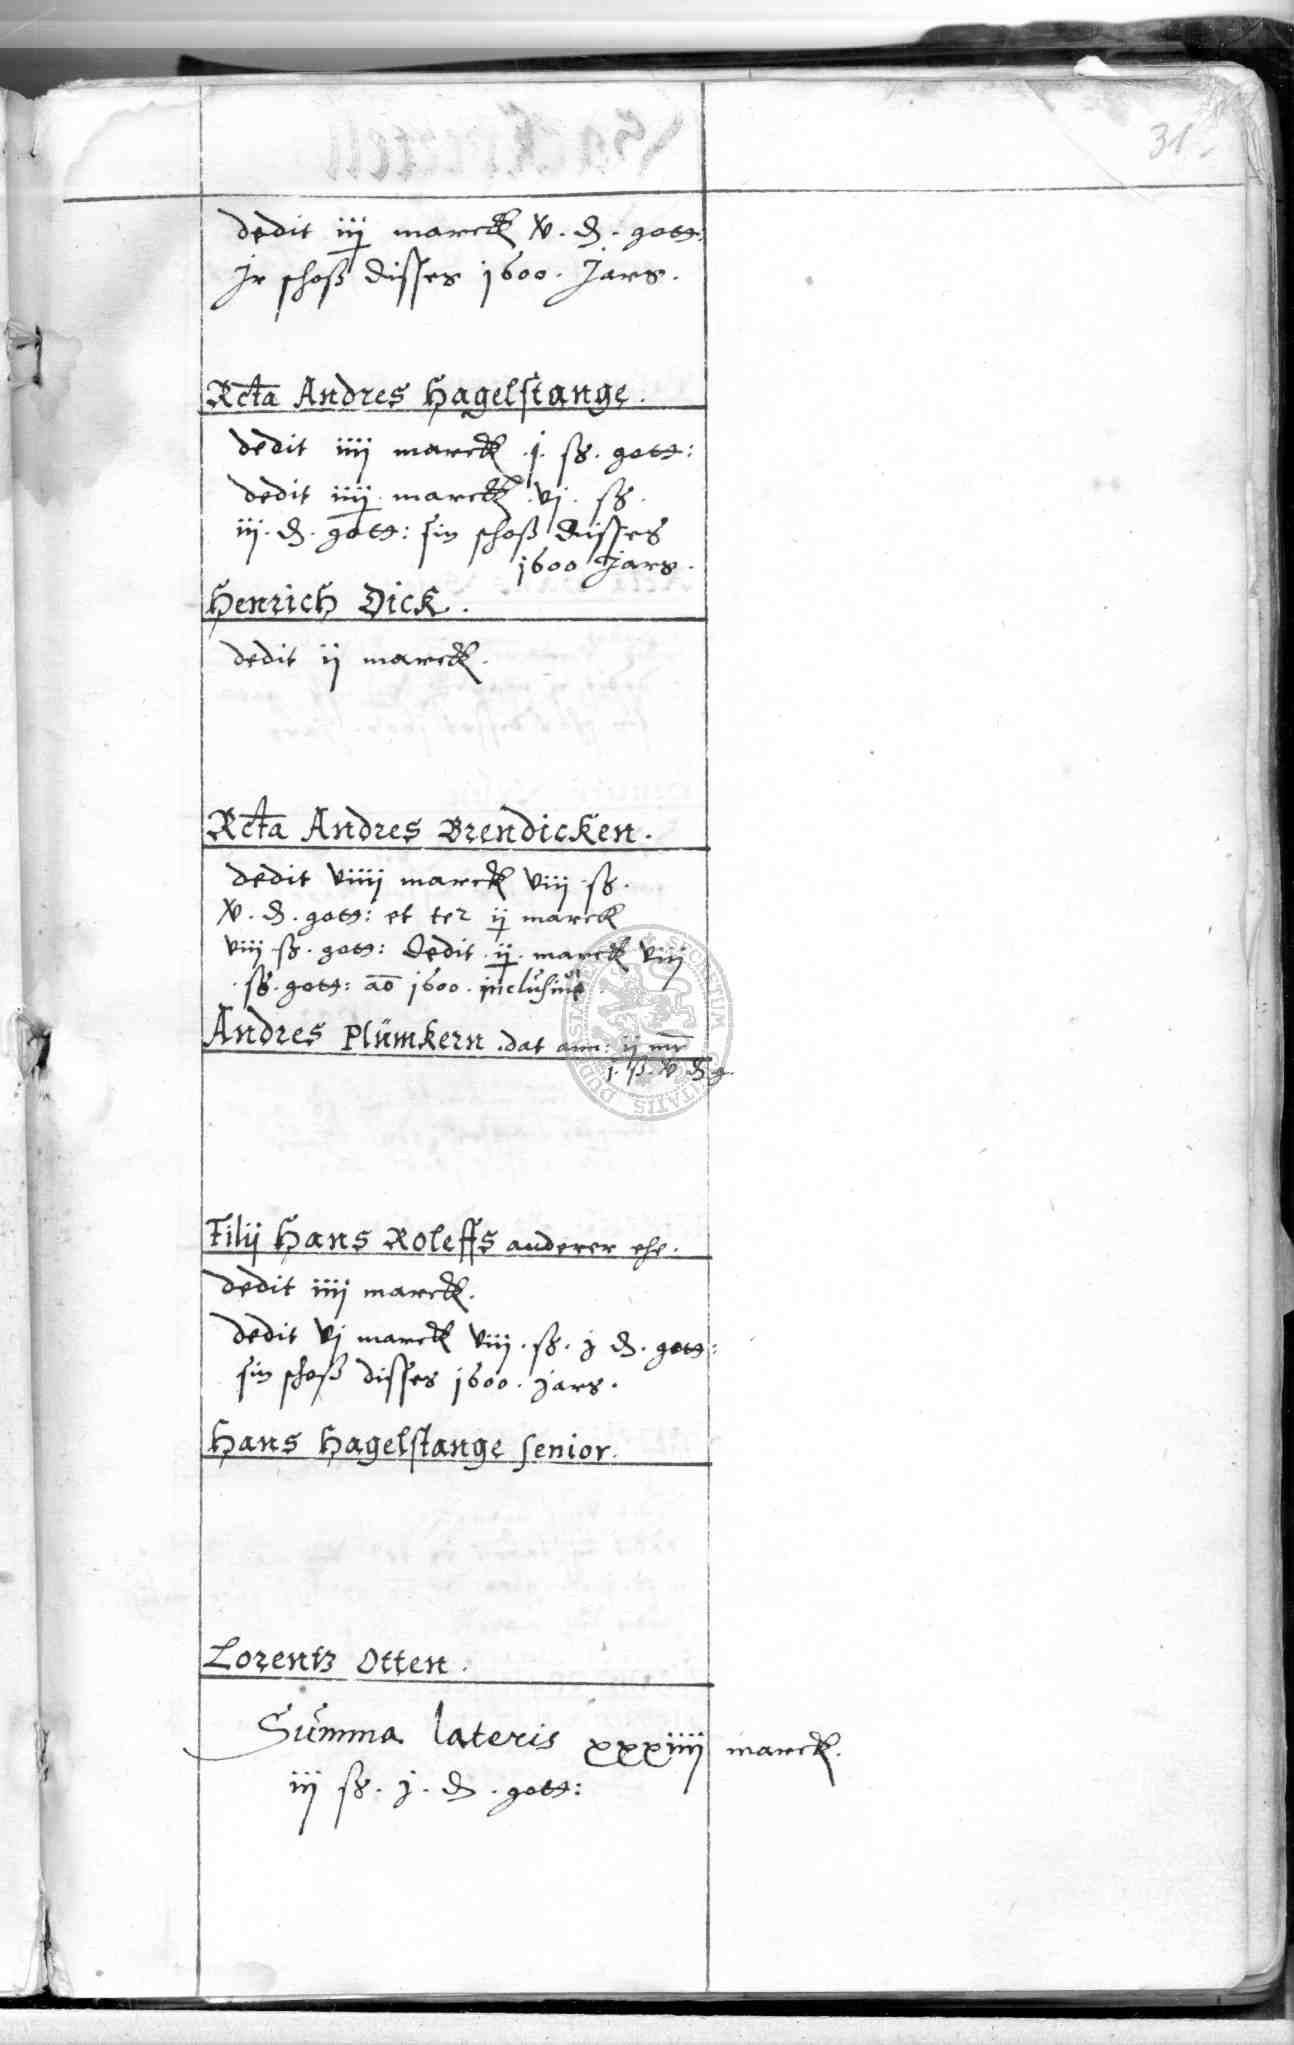 31
dedit iij marck xv. ₰. gott:
Jr schoß disses 1600. Jars.
Rcta Andres Hagelstange.
dedit iiij marck .j. ß. gott:
dedit iiij. marck. vj. ß.
iij. ₰. gott: sin schoß disses
1600 Jars.
Henrich Dick.
dedit ij marck.
Rcta Andres Brendicken.
dedit viiij marck viij ß.
xv. ₰. gott: et ter ij marck
viij ß. gott: Dedit .ij. marck viij
.ß. gott: ao 1600. inclusiue
Andres Plümkern .dat ann: ij mr
j. ß. xv ₰ g.
Filij Hans Roleffs anderer ehe.
dedit iiij marck.
dedit vj marck viij. ß. j ₰. gott:
sin schoß disses 1600. Jars.
Hans Hagelstange senior.
Lorentz Otten.
Summa lateris xxxiiij marck.
iij ß. j. ₰. gott: